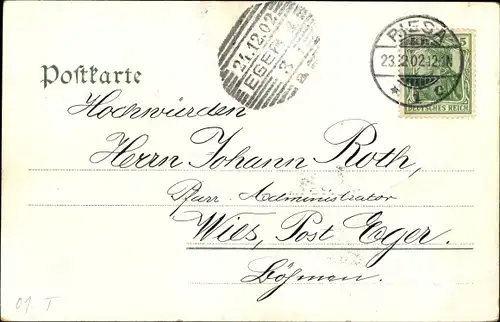 24.12.02
EGER 1
RIESA
23.12.02.12-1N
* g c *
5
DEUTSCHES REICH
Postkarte
Hochwürden
Herrn Johann Roth,
Pfarr-Administrator
Wies, Post Eger.
Böhmen.
01 T